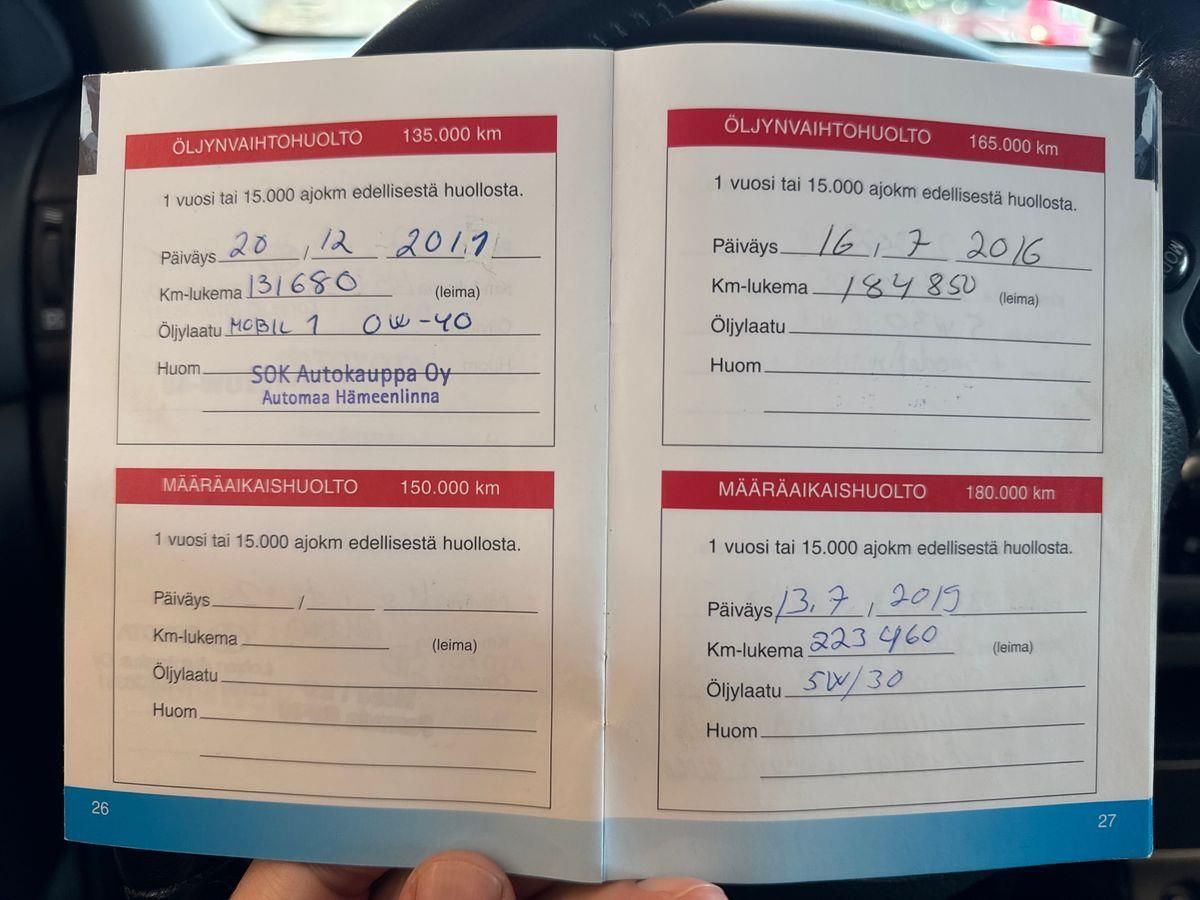 ÖLJYNVAIHTOHUOLTO 135.000 km
1 vuosi tai 15.000 ajokm edellisestä huollosta.
Päiväys 20 / 12 2011
Km-lukema 131680 (leima)
Öljylaatu MOBIL 1 0W-40
Huom
SOK Autokauppa Oy
Automaa Hämeenlinna
MÄÄRÄAIKAISHUOLTO 150.000 km
1 vuosi tai 15.000 ajokm edellisestä huollosta.
Päiväys / 
Km-lukema (leima)
Öljylaatu
Huom
26
ÖLJYNVAIHTOHUOLTO 165.000 km
1 vuosi tai 15.000 ajokm edellisestä huollosta.
Päiväys 16 / 7 2016
Km-lukema 184 850 (leima)
Öljylaatu
Huom
MÄÄRÄAIKAISHUOLTO 180.000 km
1 vuosi tai 15.000 ajokm edellisestä huollosta.
Päiväys 13.7 / 2019
Km-lukema 223 460 (leima)
Öljylaatu 5W/30
Huom
27